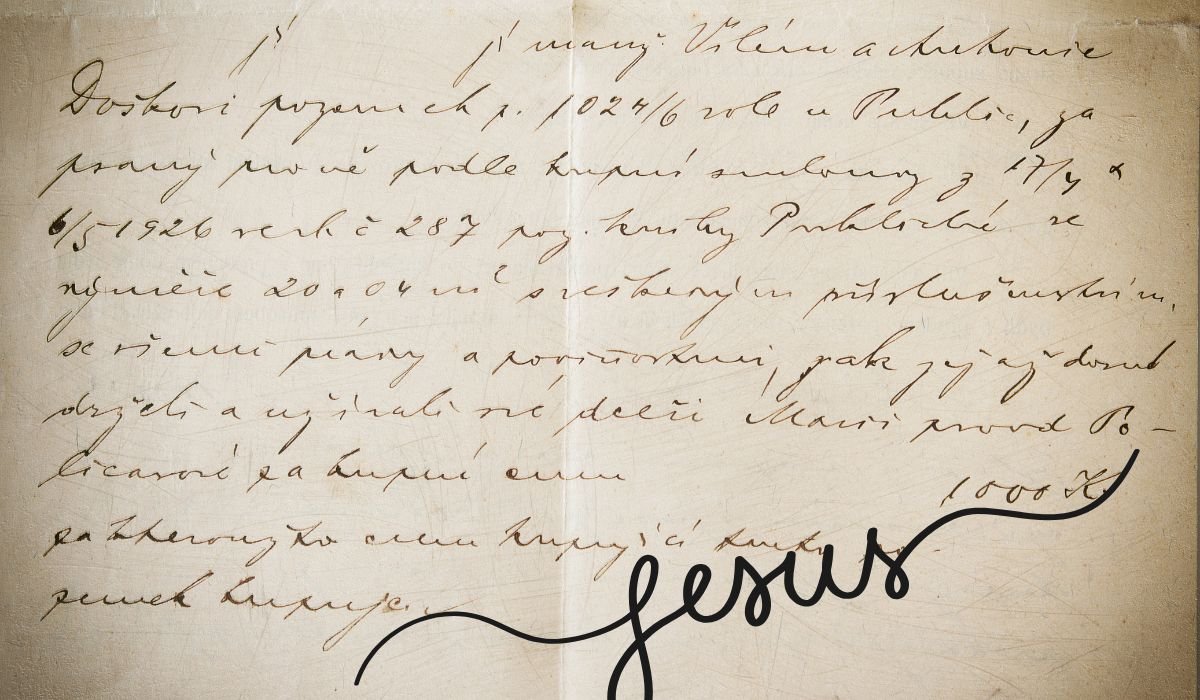 jí manž. Vilém a Antonie
Doškovi pozemek p. 1024/6 role u Public, za
psaný prvně podle kupní smlouvy z 17/4 a
6/5 1926 rerk č 287 poz. knihy Publické se
výměře 20 a 04 m² s veškerým příslušenstvím,
se všemi právy a povinnostmi, jak jej až dosud
drželi a užívali své dceři Marii provd Po-
licarové za kupní cenu
1000 K
za kteroužto cenu kupující tento po-
zemek kupuje.
Jesus